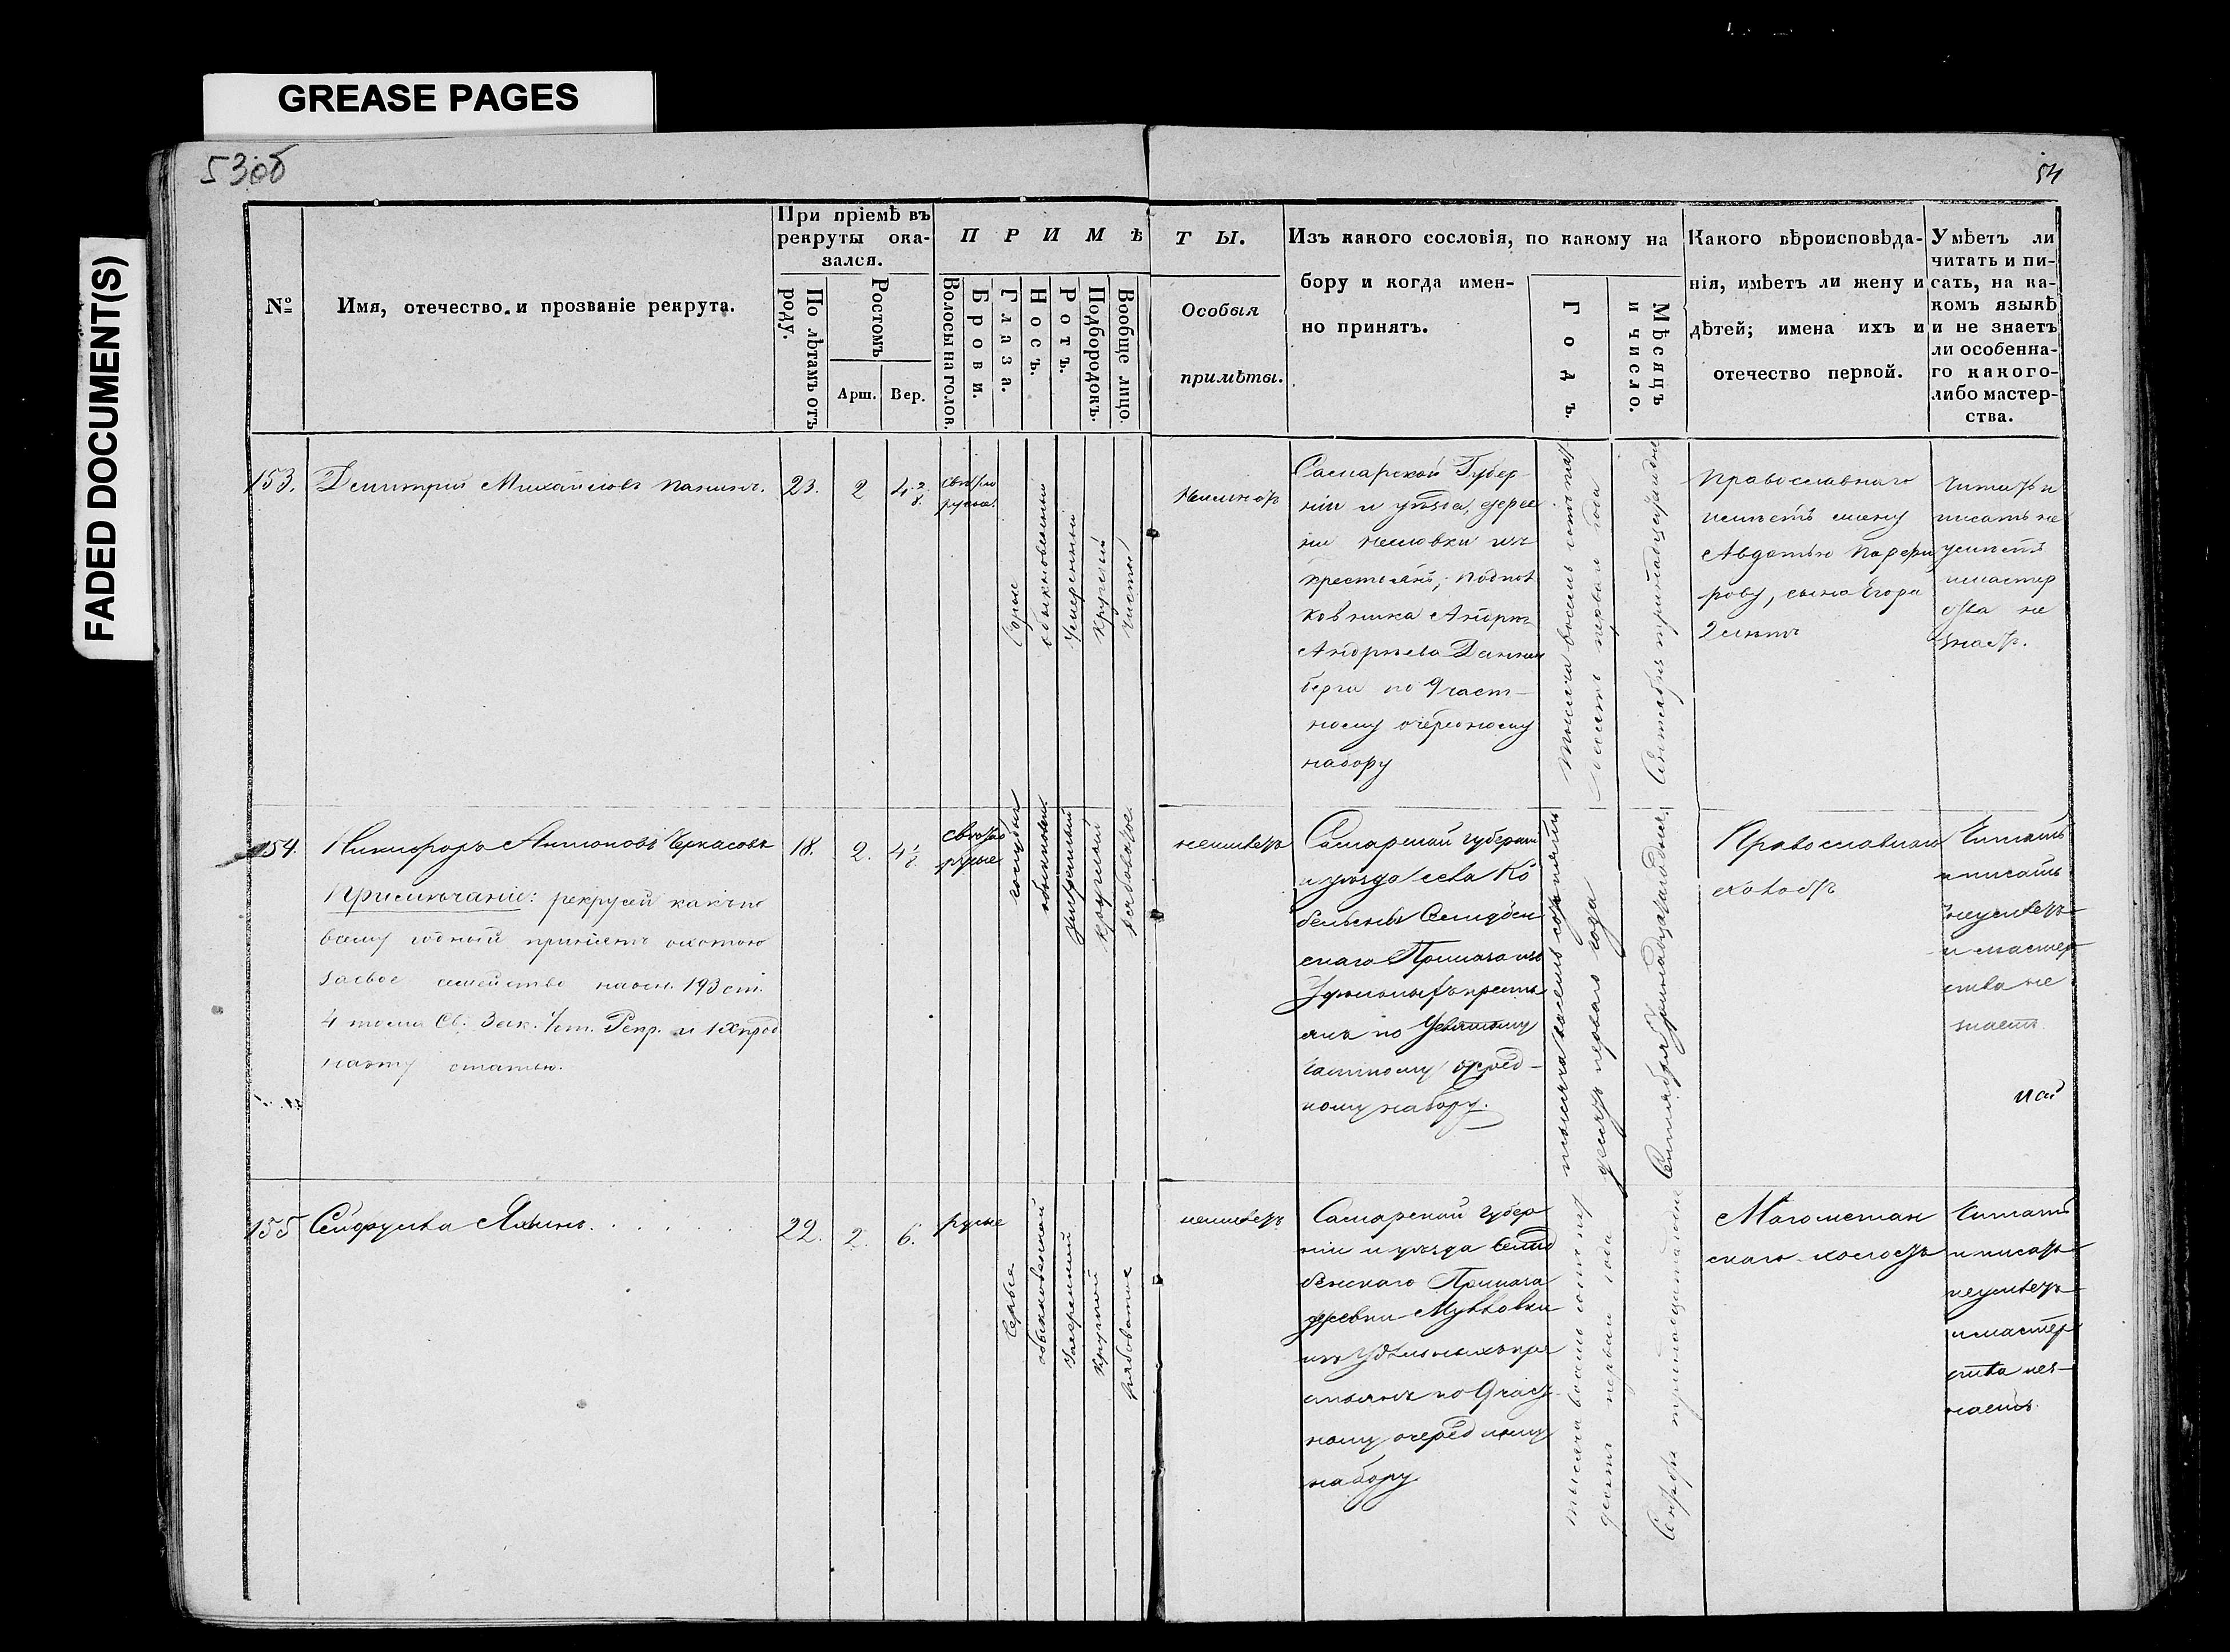 GREASE PAGES
FADED DOCUMENT(S)
53об
54
№
Имя, отечество и прозваніе рекрута.
При пріемѣ въ
рекруты ока-
зался.
По лѣтамъ отъ
роду.
Ростомъ
Арш.
Вер.
П Р И М Ѣ
Волосы на голов.
Брови.
Глаза.
Носъ.
Ротъ.
Подбородокъ.
Вообще лицо.
Т Ы.
Особыя
примѣты.
Изъ какого сословія, по какому на
бору и когда имен-
но принятъ.
Годъ.
Мѣсяцъ
и число.
Какого вѣроисповѣда-
нія, имѣетъ ли жену и
дѣтей; имена ихъ и
отечество первой.
Умѣетъ ли
читать и пи-
сать, на ка-
комъ языкѣ
и не знаетъ
ли особенна-
го какого-
либо мастер-
ства.
153.
Дмитрий Михайловъ Панинъ.
23.
2
4 2/8.
свѣтло
русые.
Сѣрые
обыкновенный
Умеренный
круглый
чистое
Неимѣетъ
Самарской Губер-
ніи и уѣзда, дерев
ни изъ
крестьянъ, Подпол
ковника Андрея
Андреева Даннен
берга по 9 част-
ному очередному
набору
Тысяча восемь сотъ пять
десятъ перваго года
Сентября тринадцатаго дня
Православнаго
имѣетъ жену
Авдотью
рову, сына Егора
2 лѣтъ
Читать и
писать не
умѣетъ
и мастер
ства не
знаетъ.
154.
Никифоръ Антоновъ Черкасовъ
Примѣчаніе: рекрутъ какъ по
годный принятъ охотою
за свое семейство на осн. 193 ст.
4 тома Св. Зак. Уст. Рекр. и IX прод
на эту статью.
18.
2.
4 1/2
свѣтло
русые
голубые
обыкновен.
умѣренный
круглый
рябоватое
неимѣетъ
Самарской губерніи
и уѣзда села Ко
бельскаго Приказа изъ
Удѣльныхъ кресть
янъ по девятому
частному очеред-
ному набору.
тысяча восемь сотъ пять
десятъ перваго года
Сентября тринадцатаго дня
Православнаго
холостъ
Читать
и писать
неумѣетъ
и мастер
ства не
знаетъ
155
Сейфулла Яхинъ. . . . .
22.
2.
6.
русые
Сѣрые
обыкновенный
Умеренный
круглый
рябоватое
неимѣетъ
Самарской губер
ніи и уѣзда
бейскаго Приказа
деревни
изъ Удѣльныхъ кре
стьянъ по 9 част
ному очередному
набору
тысяча восемь сотъ пять
десятъ перваго года
Сентября тринадцатаго дня
Магометан
скаго холостъ
Читать
и писать
неумѣетъ
и мастер
ства нез-
наетъ.